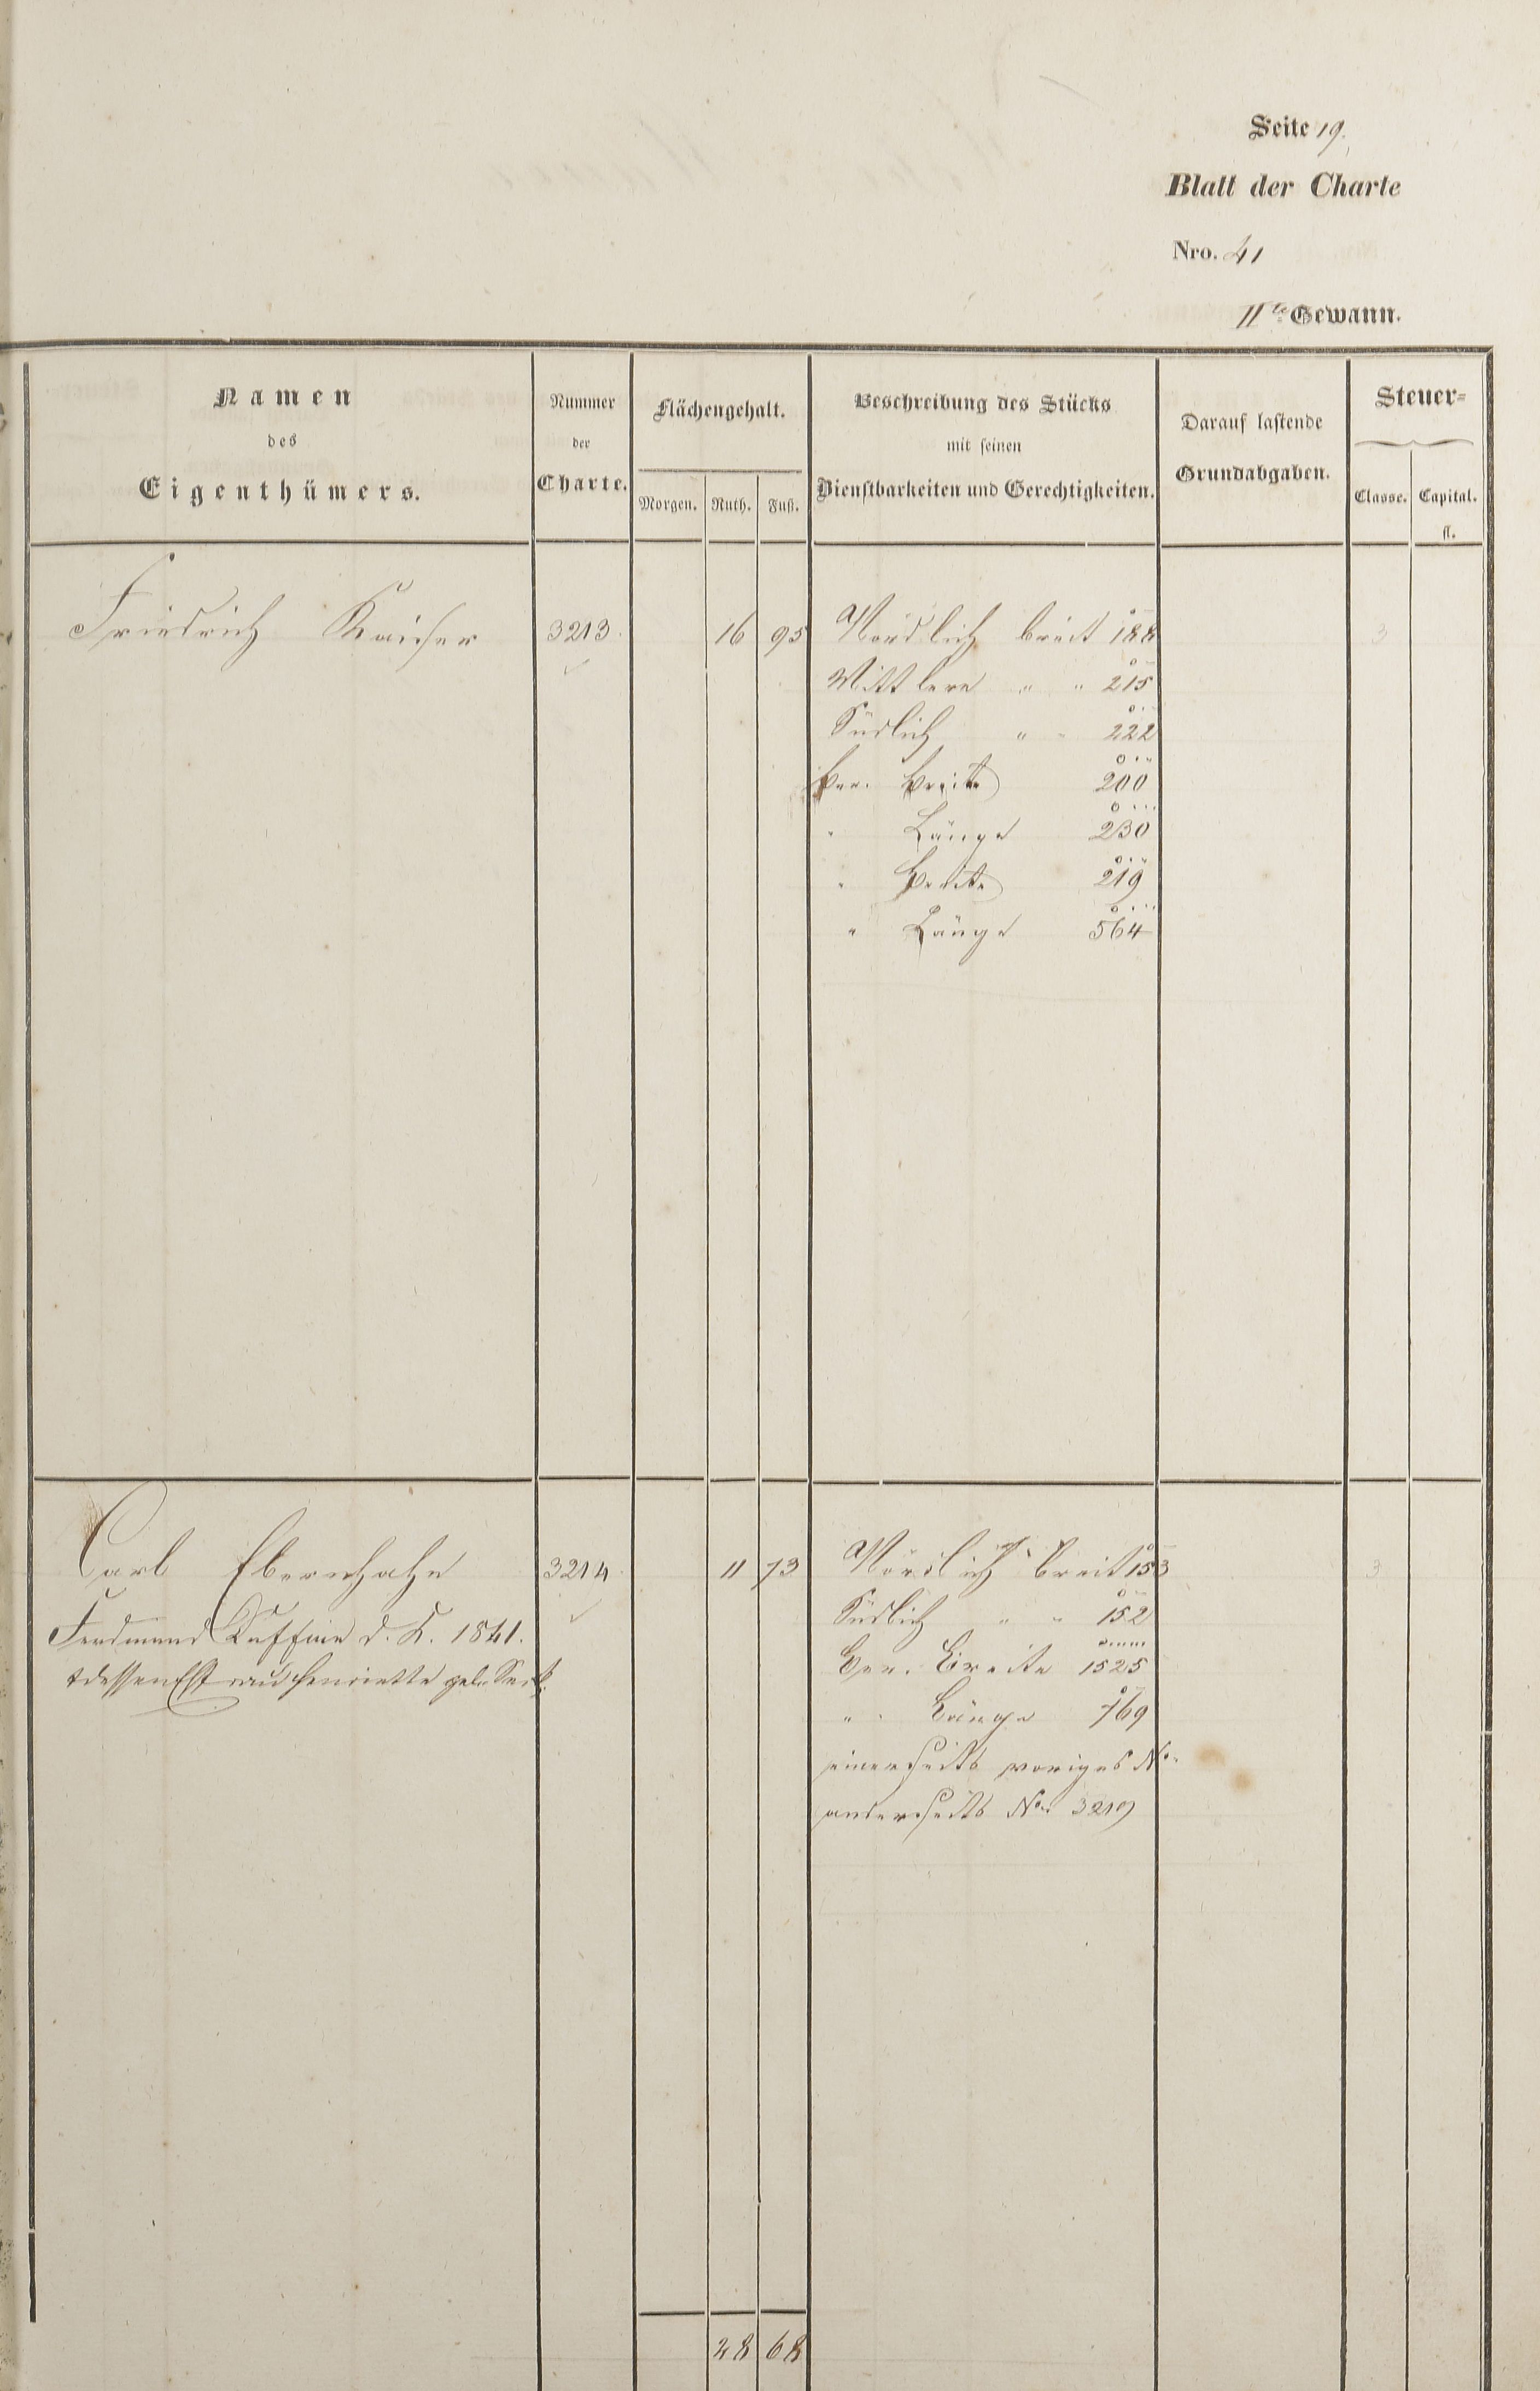 Seite 19.
Blatt der Charte
Nro. 41
IIte Gewann.
Namen
des
Eigenthümers.
Nummer
der
Charte.
Flächengehalt.
Morgen. Ruth. Fuß.
Beschreibung des Stücks
mit seinen
Dienstbarkeiten und Gerechtigkeiten.
Darauf lastende
Grundabgaben.
Steuer-
Classe. Capital.
fl.
Friedrich Kaiser 3213. 16 95 Nördlich breit 188 3
Mittlere " " 215
Südlich " " 222
Ber. Breite 200
" Länge 230
" Breite 219
" Länge 564
Carl Ebernhahn 3214. 11 73 Nördlich breit 153 3
Ferdinand d. K. 1841. Südlich " " 152
Henriette geb. Ber. Breite 1525
" " Länge 769
einerseits voriges No.
anderseits No. 3219
28 68